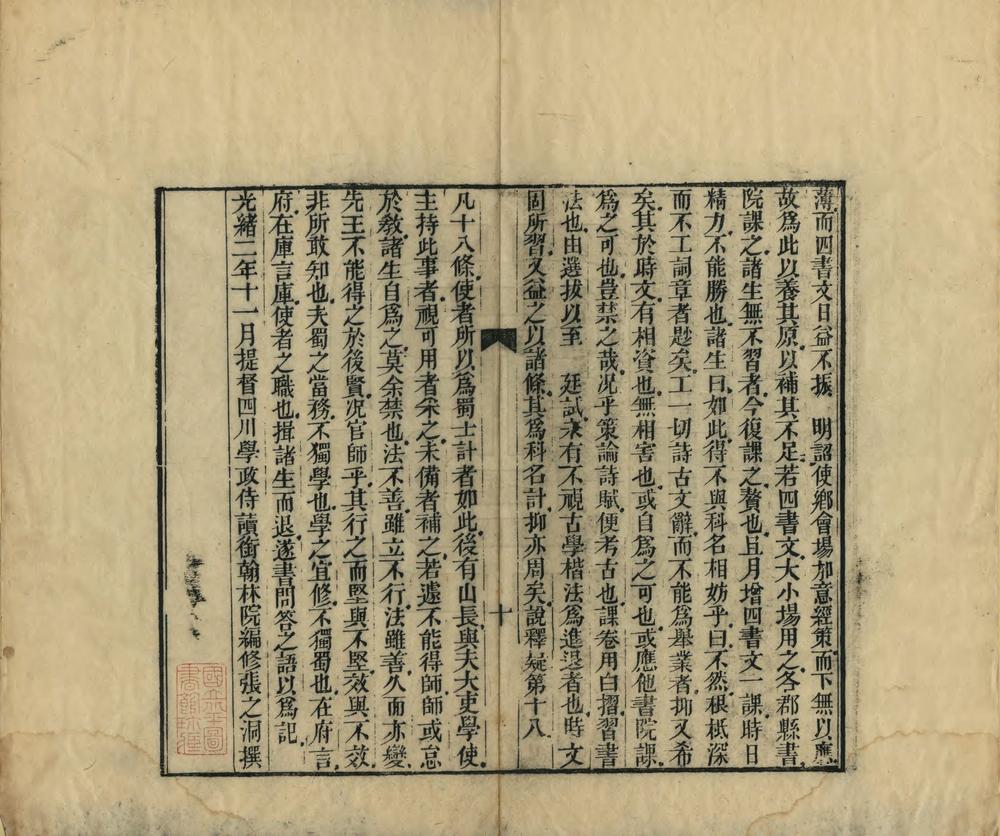 薄而四書文日益不振　明詔使鄉會場加意經策而下無以應
故爲此以養其原以補其不足若四書文大小場用之各郡縣書
院課之諸生無不習者今復課之贅也且月增四書文一課時日
精力不能勝也諸生曰如此得不與科名相妨乎曰不然根柢深
而不工詞章者尟矣工一切詩古文辭而不能爲舉業者抑又希
矣其於時文有相資也無相害也或自爲之可也或應他書院課
爲之可也豈禁之哉况乎策論詩賦便考古也課卷用白摺習書
法也由選拔以至　廷試未有不視古學楷法爲進退者也時文
固所習又益之以諸條其爲科名計抑亦周矣說釋疑第十八
凡十八條使者所以爲蜀士計者如此後有山長與夫大吏學使
主持此事者視可用者采之未備者補之若遽不能得師師或怠
於教諸生自爲之莫余禁也法不善雖立不行法雖善久而亦變
先王不能得之於後賢况官師乎其行之而堅與不堅效與不效
非所敢知也夫蜀之當務不獨學也學之宜修不獨蜀也在府言
府在庫言庫使者之職也揖諸生而退遂書問答之語以爲記
光緒二年十一月提督四川學政侍讀銜翰林院編修張之洞撰
十